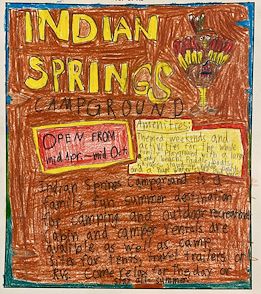 INDIAN
SPRINGS
CAMPGROUND
OPEN FROM
mid
mid Oct.
Amenities:
Themed weekends and
activities for the whole
Indian Springs Campground is a
family fun summer destination
for camping and outdoor recreation.
Cabin and camper rentals are
available as well as camp
sites for tents, travel trailers or
RVs. Come relax for the day or
summer.